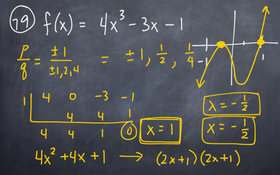 79) f(x) = 4x³ - 3x - 1
p/q = ±1/±1,2,4 = ±1, 1/2, 1/4
-1 1
1 | 4 0 -3 -1
4 4 1
4 4 1 0
x = 1
x = -1/2
x = -1/2
4x² + 4x + 1 → (2x+1)(2x+1)